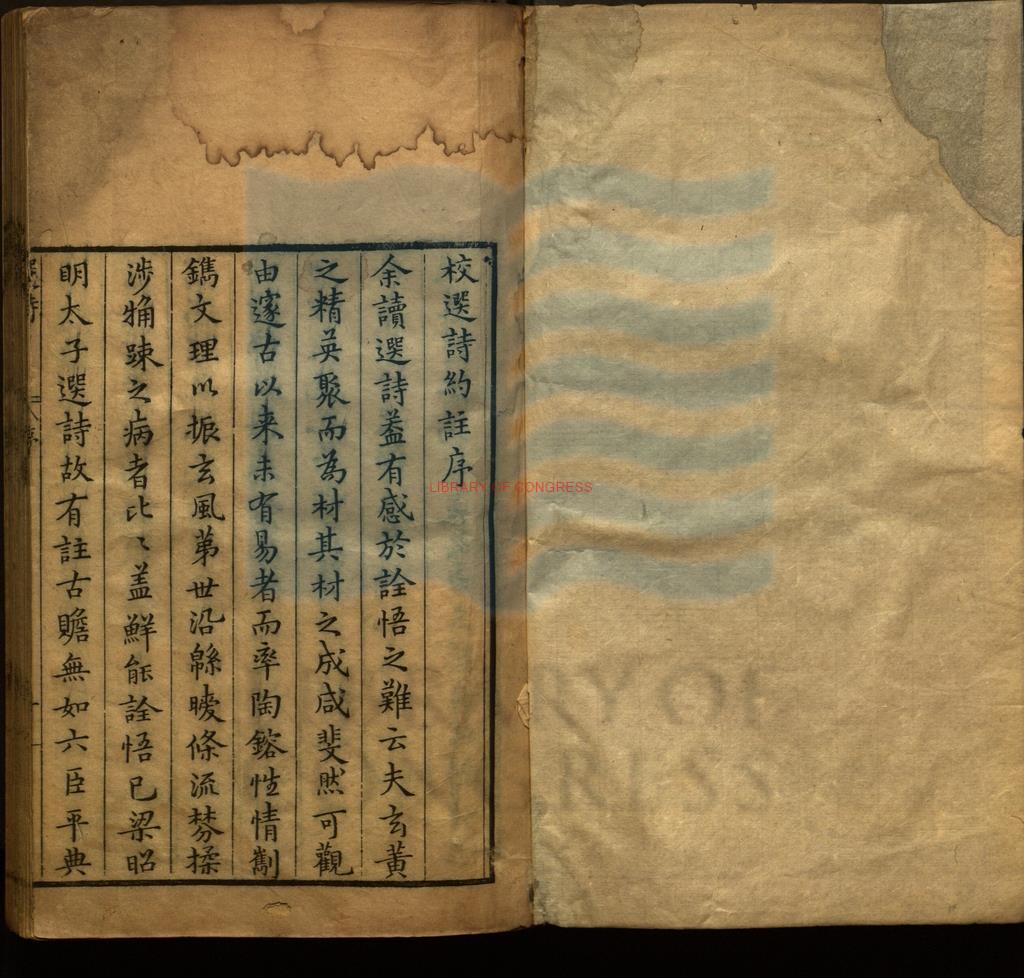 校選詩約註序
余讀選詩蓋有感於詮悟之難云夫玄黃
之精英聚而為材其材之成咸斐然可觀
由邃古以来未有易者而率陶鎔性情劀
鐫文理以振玄風苐世沿緜曖條流棼揉
涉觕踈之病者比〻盖鮮能詮悟已梁昭
明太子選詩故有註古贍無如六臣平典
LIBRARY OF CONGRESS